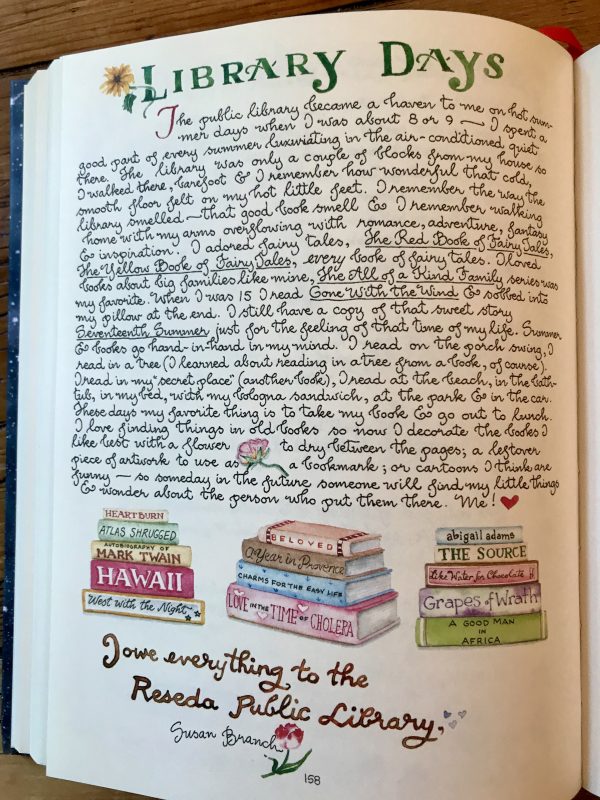 LIBRARY DAYS
The public library became a haven to me on hot sum-
mer days when I was about 8 or 9 — I spent a
good part of every summer luxuriating in the air-conditioned, quiet
there. The library was only a couple of blocks from my house so
I walked there, barefoot & I remember how wonderful that cold,
smooth floor felt on my hot little feet. I remember the way the
library smelled — that good book smell & I remember walking
home with my arms overflowing with romance, adventure, fantasy
& inspiration. I adored fairy tales, The Red Book of Fairy Tales,
The Yellow Book of Fairy Tales, every book of fairy tales. I loved
books about big families like mine, The All of a Kind Family series was
my favorite. When I was 15 I read Gone With the Wind & sobbed into
my pillow at the end. I still have a copy of that sweet story
Seventeenth Summer just for the feeling of that time of my life. Summer
& books go hand-in-hand in my mind. I read on the porch swing, I
read in a tree (I learned about reading in a tree from a book, of course).
I read in my "secret place" (another book), I read at the beach, in the bath-
tub, in my bed, with my bologna sandwich, at the park & in the car.
These days my favorite thing is to take my book & go out to lunch.
I love finding things in old books so now I decorate the books I
like best with a flower to dry between the pages; a leftover
piece of artwork to use as a bookmark; or cartoons I think are
funny — so someday in the future someone will find my little things
& wonder about the person who put them there. Me!
HEARTBURN
ATLAS SHRUGGED
AUTOBIOGRAPHY OF
MARK TWAIN
HAWAII
West with the Night
BELOVED
A Year in Provence
CHARMS FOR THE EASY LIFE
LOVE IN THE TIME OF CHOLERA
abigail adams
THE SOURCE
Like Water for Chocolate
Grapes of Wrath
A GOOD MAN
IN
AFRICA
I owe everything to the
Reseda Public Library,
Susan Branch
158